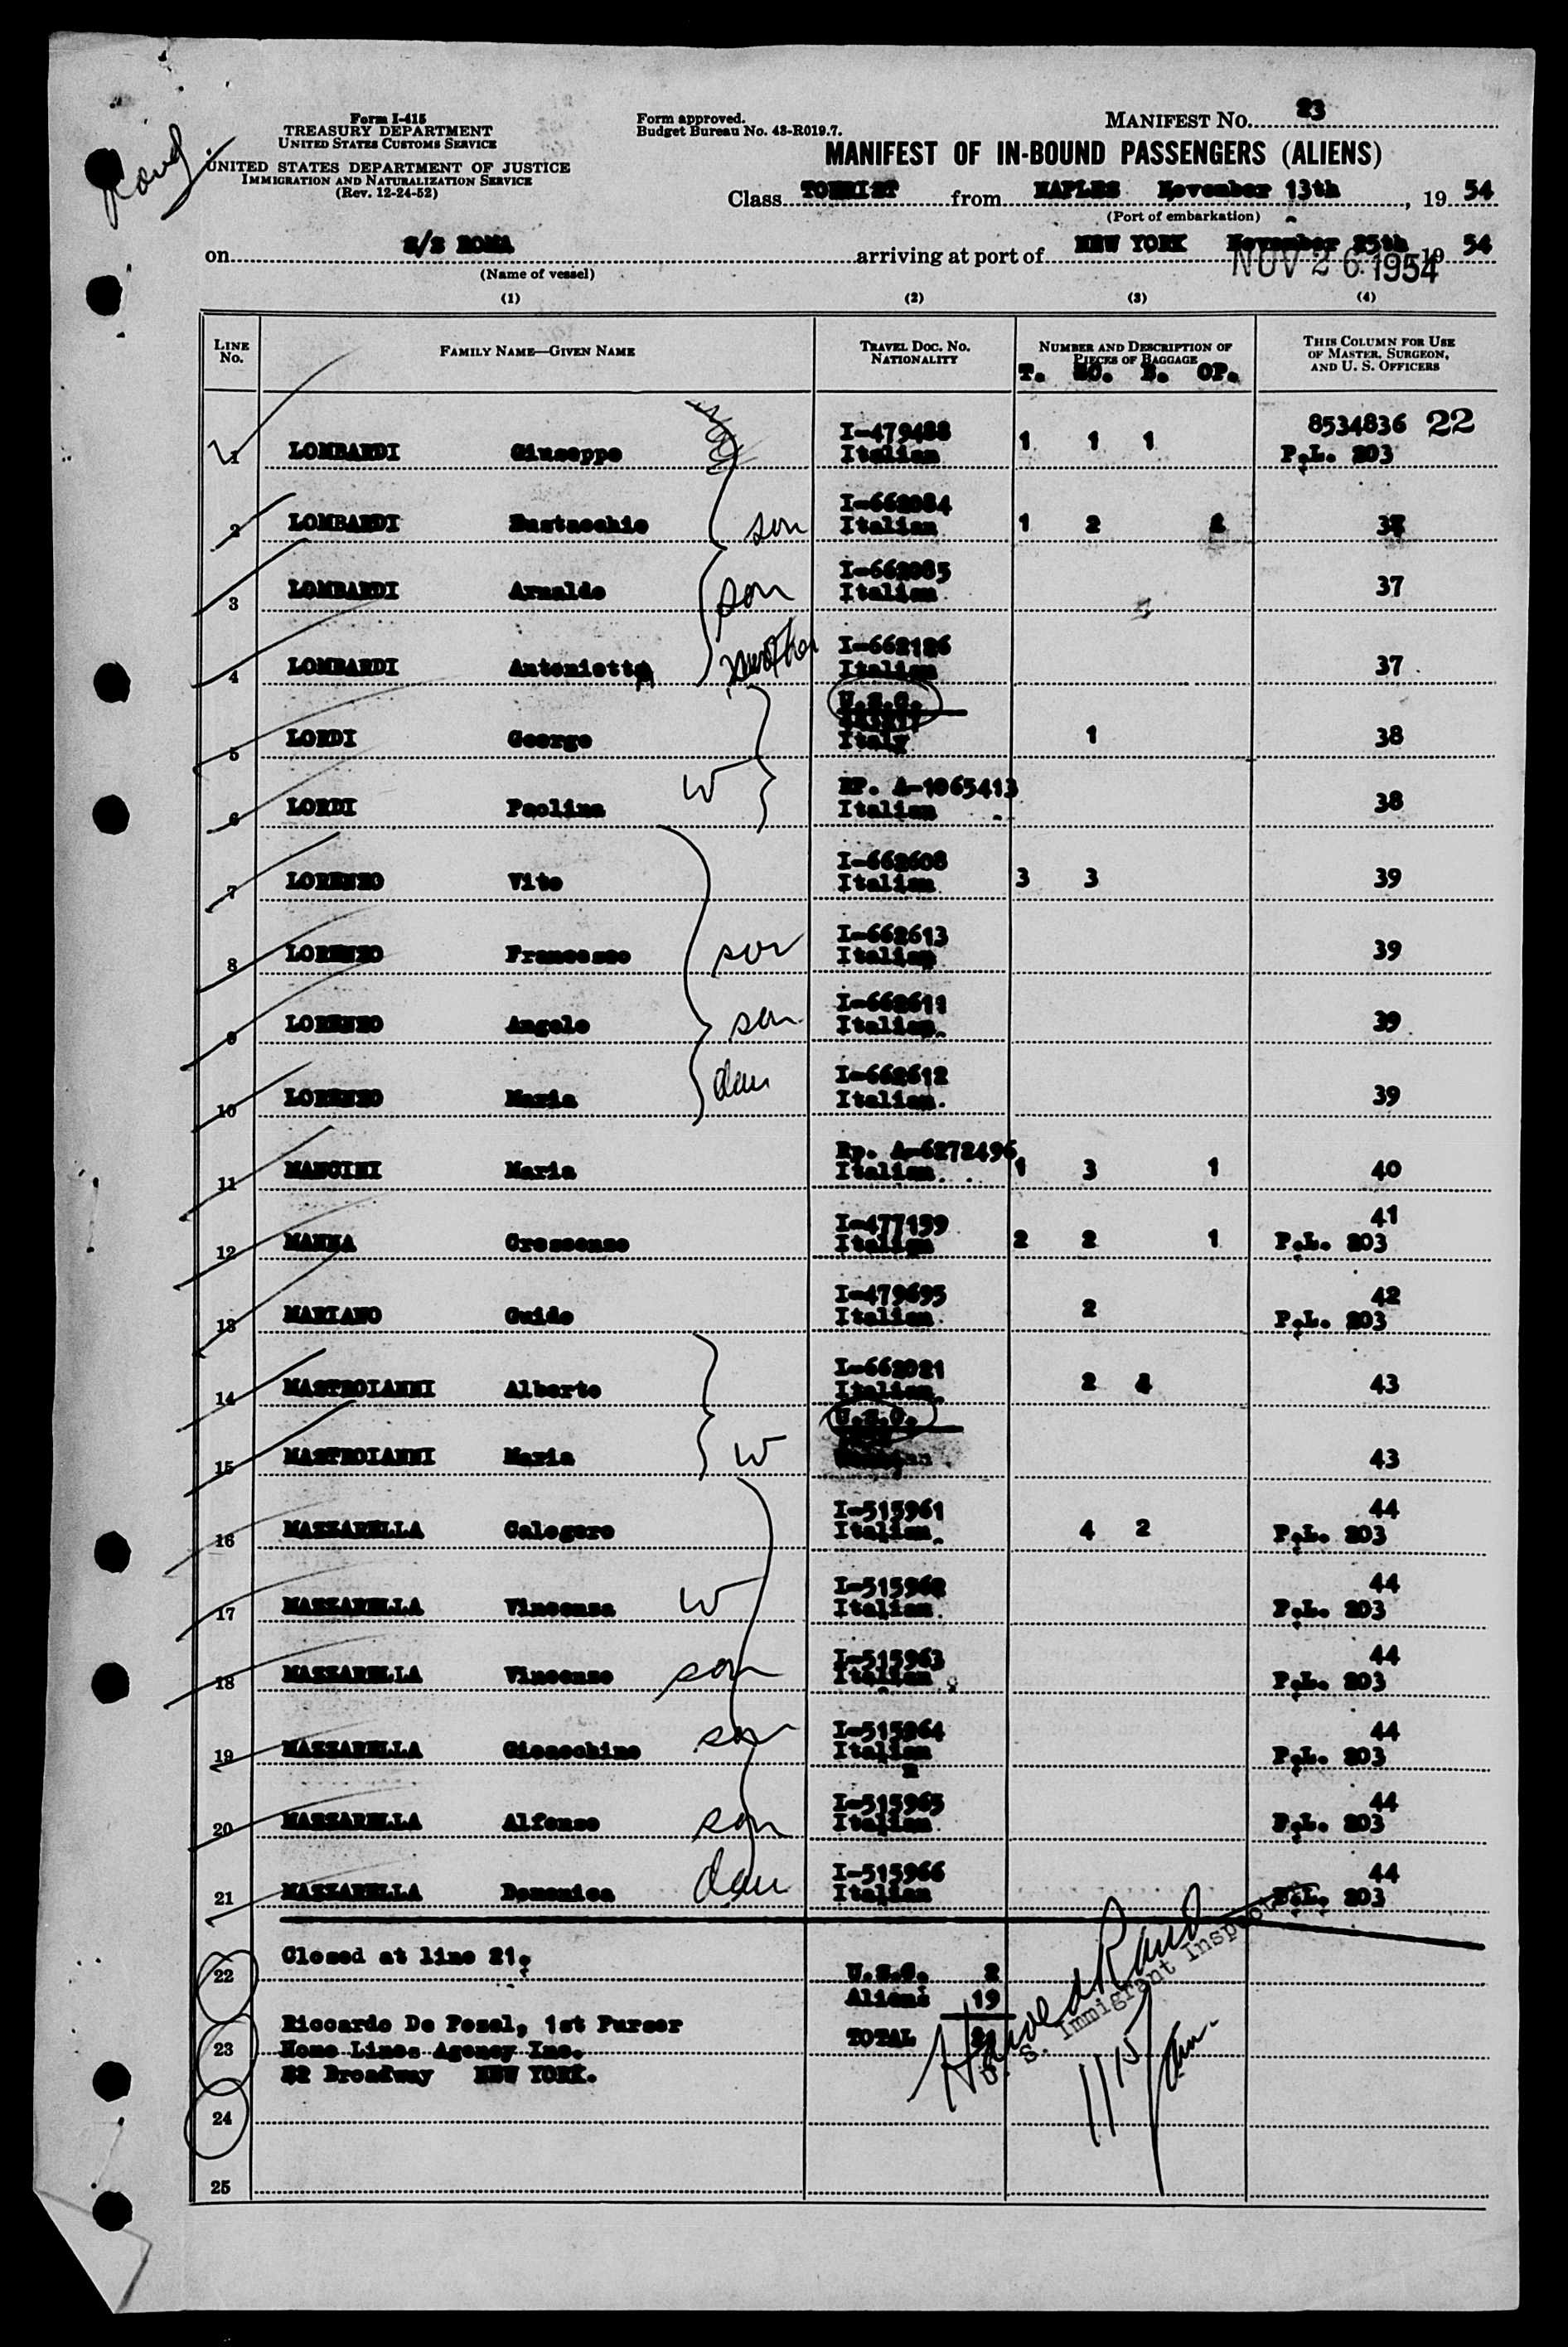 Form I-415
TREASURY DEPARTMENT
UNITED STATES CUSTOMS SERVICE
UNITED STATES DEPARTMENT OF JUSTICE
IMMIGRATION AND NATURALIZATION SERVICE
(Rev. 12-24-52)
Form approved.
Budget Bureau No. 43-R019.7.
MANIFEST NO. 23
MANIFEST OF IN-BOUND PASSENGERS (ALIENS)
Class TOURIST from NAPLES November 13th, 19 54
(Port of embarkation)
on S/S ROMA arriving at port of NEW YORK November 25th 19 54
(Name of vessel)
NOV 26 1954
(1) (2) (3) (4)
LINE No.
FAMILY NAME—GIVEN NAME
TRAVEL DOC. NO. NATIONALITY
NUMBER AND DESCRIPTION OF PIECES OF BAGGAGE
T. SC. B. OP.
THIS COLUMN FOR USE OF MASTER, SURGEON, AND U. S. OFFICERS
1 LOMBARDI Giuseppe I-479488 Italian 1 1 1 8534836 22 P.L. 203
2 LOMBARDI Eustacchio son I-662084 Italian 1 2 37
3 LOMBARDI Arnaldo son I-662085 Italian 37
4 LOMBARDI Antonietta mother I-662126 Italian 37
5 LORDI George U.S.C. Italy 1 38
6 LORDI Paolina W RP. A-1065413 Italian 38
7 LORENZO Vito I-662608 Italian 3 3 39
8 LORENZO Francesco son I-662613 Italian 39
9 LORENZO Angelo son I-662611 Italian 39
10 LORENZO Maria dau I-662612 Italian 39
11 MANCINI Maria Rp. A-6272496 Italian 1 3 1 40
12 MANNA Crescenzo I-477159 Italian 2 2 1 41 P.L. 203
13 MARIANO Guido I-479695 Italian 2 42 P.L. 203
14 MASTROIANNI Alberto I-662021 Italian 2 43
15 MASTROIANNI Maria W U.S.C. 43
16 MAZZARELLA Calogero I-515961 Italian 4 2 44 P.L. 203
17 MAZZARELLA Vincenza W I-515962 Italian 44 P.L. 203
18 MAZZARELLA Vincenzo son I-515963 Italian 44 P.L. 203
19 MAZZARELLA Gioacchino son I-515964 Italian 44 P.L. 203
20 MAZZARELLA Alfonso son I-515965 Italian 44 P.L. 203
21 MAZZARELLA Domenica dau I-515966 Italian 44 P.L. 203
22 Closed at line 21.
U.S.C. 2
Aliens 19
TOTAL 21
23 Riccardo De Pozal, 1st Purser
Home Lines Agency Inc.
32 Broadway NEW YORK.
U. S. Immigrant Inspector
24
25